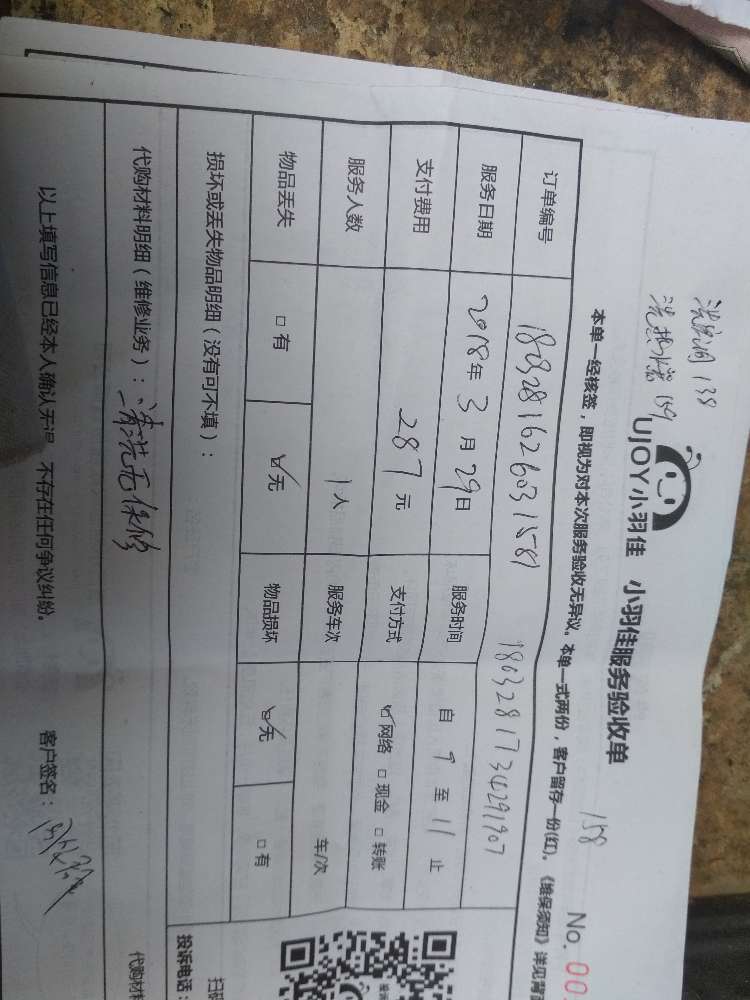 洗热水器 159
UJOY小羽佳 小羽佳服务验收单
158
No. 00
本单一经核签，即视为对本次服务验收无异议。本单一式两份，客户留存一份(红)。《维保须知》详见背
订单编号 18032817340291907
服务日期 2018年 3 月 29日 服务时间 自 9 至 11 止
支付费用 287元 支付方式 ☑网络 □现金 □转账
服务人数 1人 服务车次 车/次
物品丢失 □有 ☑无 物品损坏 ☑无 □有
损坏或丢失物品明细（没有可不填）：
代购材料明细（维修业务）：清洗无保修
代购材
以上填写信息已经本人确认无误，不存在任何争议纠纷。 客户签名：
扫
投诉电话：